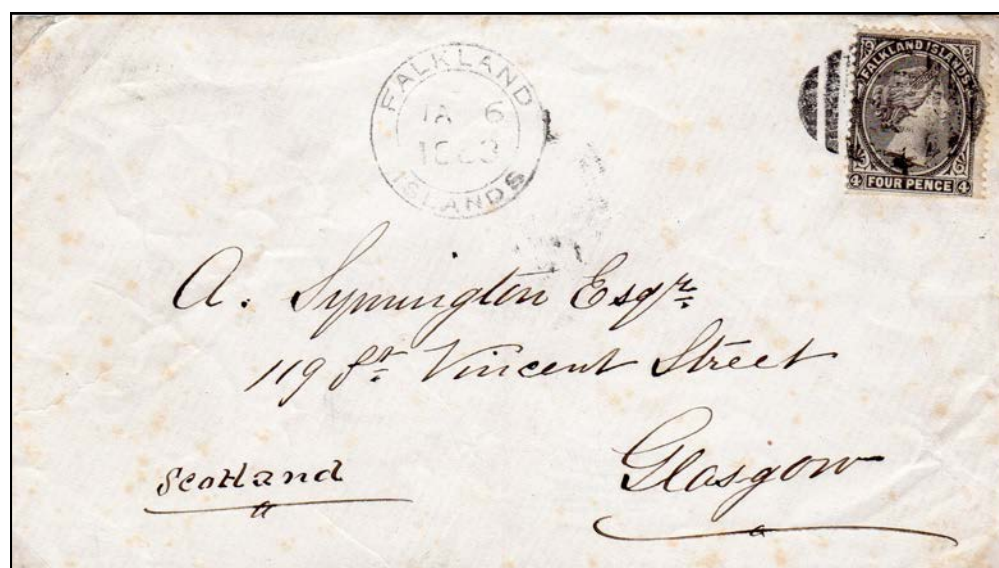 FALKLAND
JA 6
1883
ISLANDS
FALKLAND ISLANDS
4 FOUR PENCE 4
A. Symington Esqr.
119 St. Vincent Street
Glasgow
Scotland